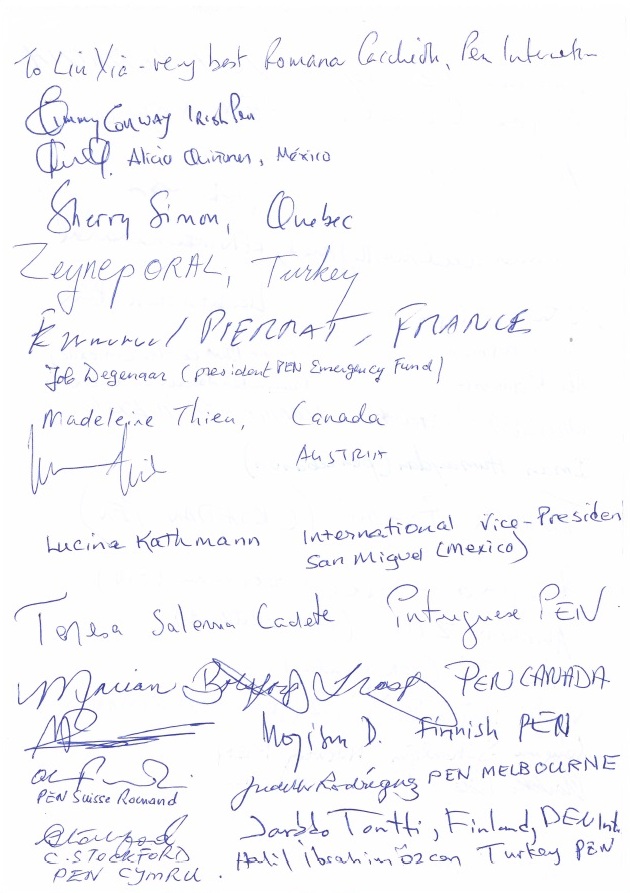 To Liu Xia - very best Romana Cacchioli, Pen Internatn
Emmy Conway Irish Pen
Alicia Quiñones, México
Sherry Simon, Quebec
Zeynep ORAL, Turkey
Emmanuel PIERRAT, FRANCE
Job Degenaar (president PEN Emergency Fund)
Madeleine Thien, Canada
AUSTRIA
Lucina Kathmann International Vice-Presiden
San Miguel (Mexico)
Teresa Salema Cadete Portuguese PEN
Marian Botsford Fraser PEN CANADA
D. Finnish PEN
PEN Suisse Romand
Judith Rodriguez PEN MELBOURNE
Jarkko Tontti, Finland, PEN Int.
C. STOCKFORD
PEN CYMRU.
Halil İbrahim Özcan Turkey PEN